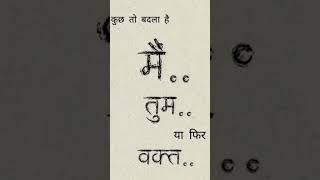 कुछ तो बदला है
मैं..
तुम..
या फिर
वक्त..